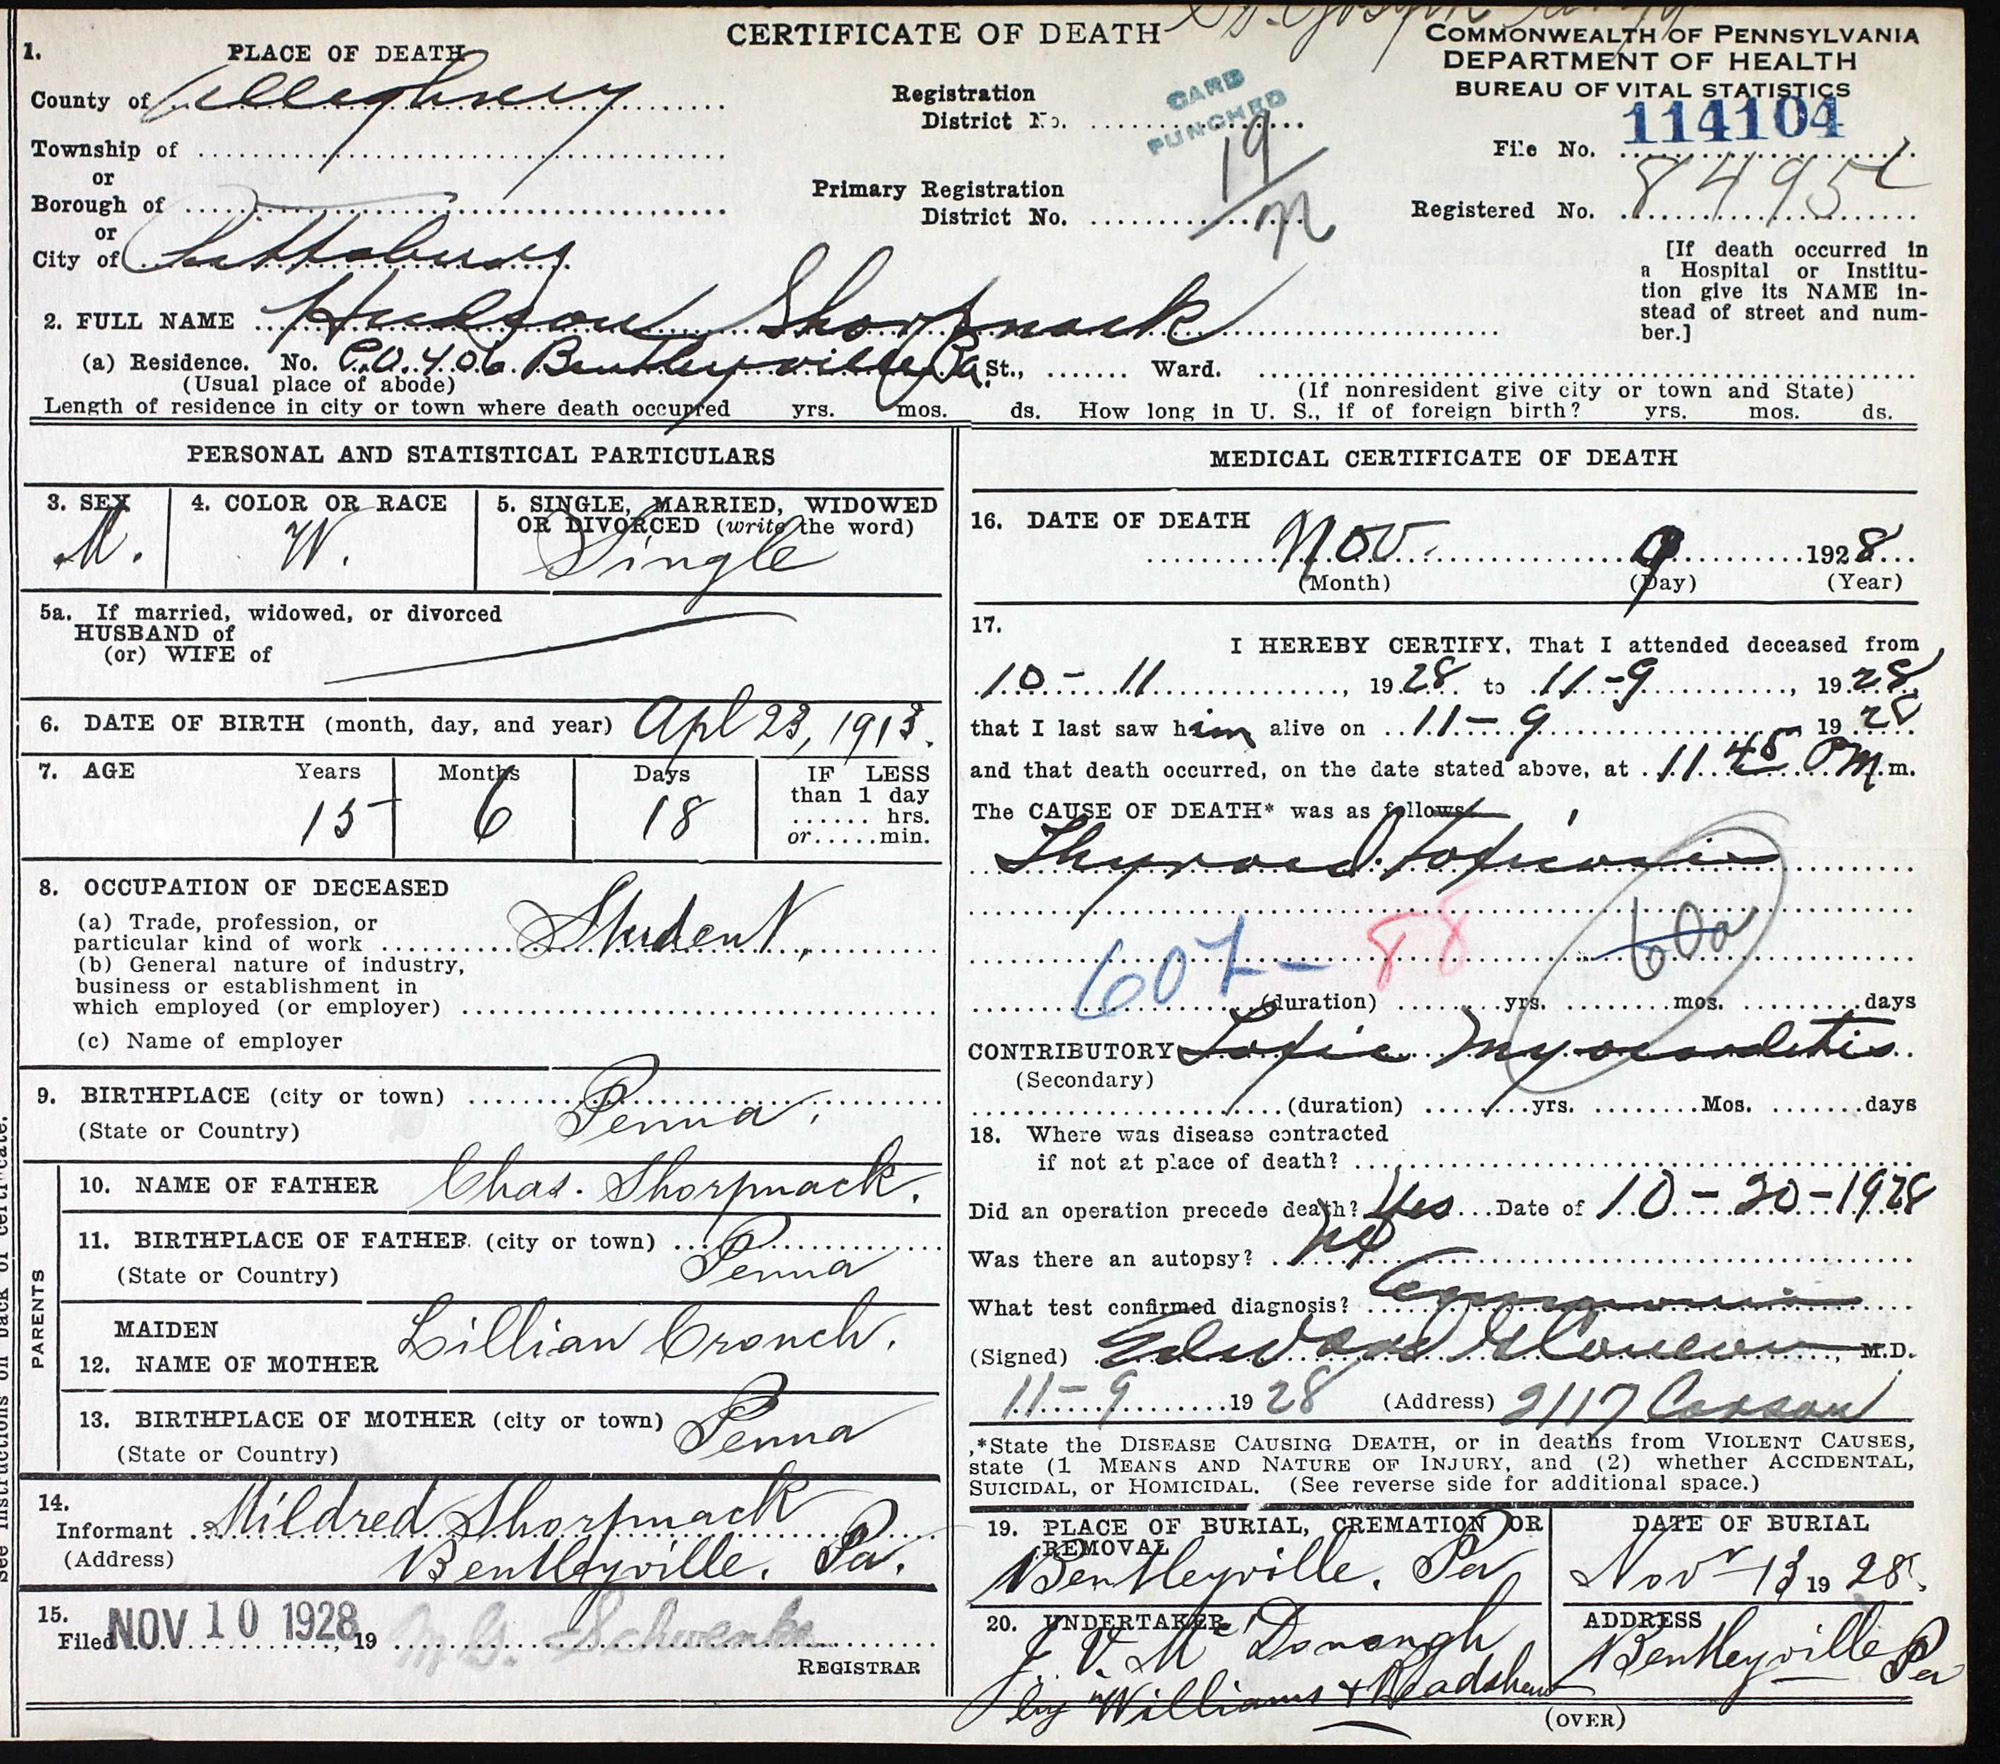 CERTIFICATE OF DEATH
St. Joseph
COMMONWEALTH OF PENNSYLVANIA
DEPARTMENT OF HEALTH
BUREAU OF VITAL STATISTICS
1. PLACE OF DEATH
County of Allegheny
Township of
or
Borough of
or
City of Pittsburg
Registration
District No.
CARD
PUNCHED
19
Primary Registration
District No.
File No. 114104
Registered No. 8495
[If death occurred in
a Hospital or Institu-
tion give its NAME in-
stead of street and num-
ber.]
2. FULL NAME Hudson Shorpnack
(a) Residence. No. P.O. 406 Bentleyville Pa St., Ward.
(Usual place of abode) (If nonresident give city or town and State)
Length of residence in city or town where death occurred yrs. mos. ds. How long in U. S., if of foreign birth? yrs. mos. ds.
PERSONAL AND STATISTICAL PARTICULARS
3. SEX 4. COLOR OR RACE 5. SINGLE, MARRIED, WIDOWED
OR DIVORCED (write the word)
M. W. Single
5a. If married, widowed, or divorced
HUSBAND of
(or) WIFE of
6. DATE OF BIRTH (month, day, and year) Apl 23, 1913.
7. AGE Years Months Days IF LESS
than 1 day
hrs.
or min.
15 6 18
8. OCCUPATION OF DECEASED
(a) Trade, profession, or
particular kind of work Student
(b) General nature of industry,
business or establishment in
which employed (or employer)
(c) Name of employer
9. BIRTHPLACE (city or town)
(State or Country) Penna.
PARENTS
10. NAME OF FATHER Chas. Shorpnack.
11. BIRTHPLACE OF FATHER (city or town)
(State or Country) Penna
MAIDEN
12. NAME OF MOTHER Lillian Crouch.
13. BIRTHPLACE OF MOTHER (city or town)
(State or Country) Penna
14.
Informant Mildred Shorpnack
(Address) Bentleyville. Pa.
15.
Filed NOV 10 1928, 19 M. G. Schwenke
REGISTRAR
MEDICAL CERTIFICATE OF DEATH
16. DATE OF DEATH
Nov. 9 1928
(Month) (Day) (Year)
17.
I HEREBY CERTIFY, That I attended deceased from
10 - 11, 1928 to 11-9, 1928
that I last saw him alive on 11-9 1928
and that death occurred, on the date stated above, at 11 45 PM m.
The CAUSE OF DEATH* was as follows
Thyroid toxicosis
60a
607- 88
(duration) yrs. mos. days
CONTRIBUTORY Toxic Myocarditis
(Secondary)
(duration) yrs. Mos. days
18. Where was disease contracted
if not at place of death?
Did an operation precede death? Yes Date of 10-20-1928
Was there an autopsy? No
What test confirmed diagnosis?
(Signed) Edward M.D.
11-9 1928 (Address) 2117 Carson
*State the DISEASE CAUSING DEATH, or in deaths from VIOLENT CAUSES,
state (1 MEANS AND NATURE OF INJURY, and (2) whether ACCIDENTAL,
SUICIDAL, or HOMICIDAL. (See reverse side for additional space.)
19. PLACE OF BURIAL, CREMATION OR
REMOVAL
Bentleyville. Pa
DATE OF BURIAL
Nov 13 1928.
20. UNDERTAKER
J. V. McDonough
by Williams & Bradshaw
ADDRESS
Bentleyville Pa
(OVER)
See instructions on back of certificate.